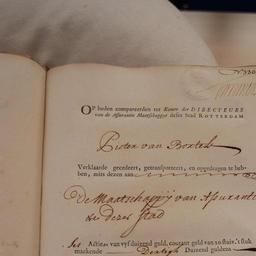 OP heden compareerden ter Kamer der DIRECTEURS
van de Assurantie Maatschappye deser Stad ROTTERDAM
Pieter van Boxtel
Verklaarde gecedeert, getransporteert, en opgedragen te heb-
ben, mits dezen aan
De Maatschappij van Assurantie
dezer Stad
Ses Actien van vyf duizend guld. courant geld van 20 stuiv. 't stuk
makende Dertigh Duizend guldens